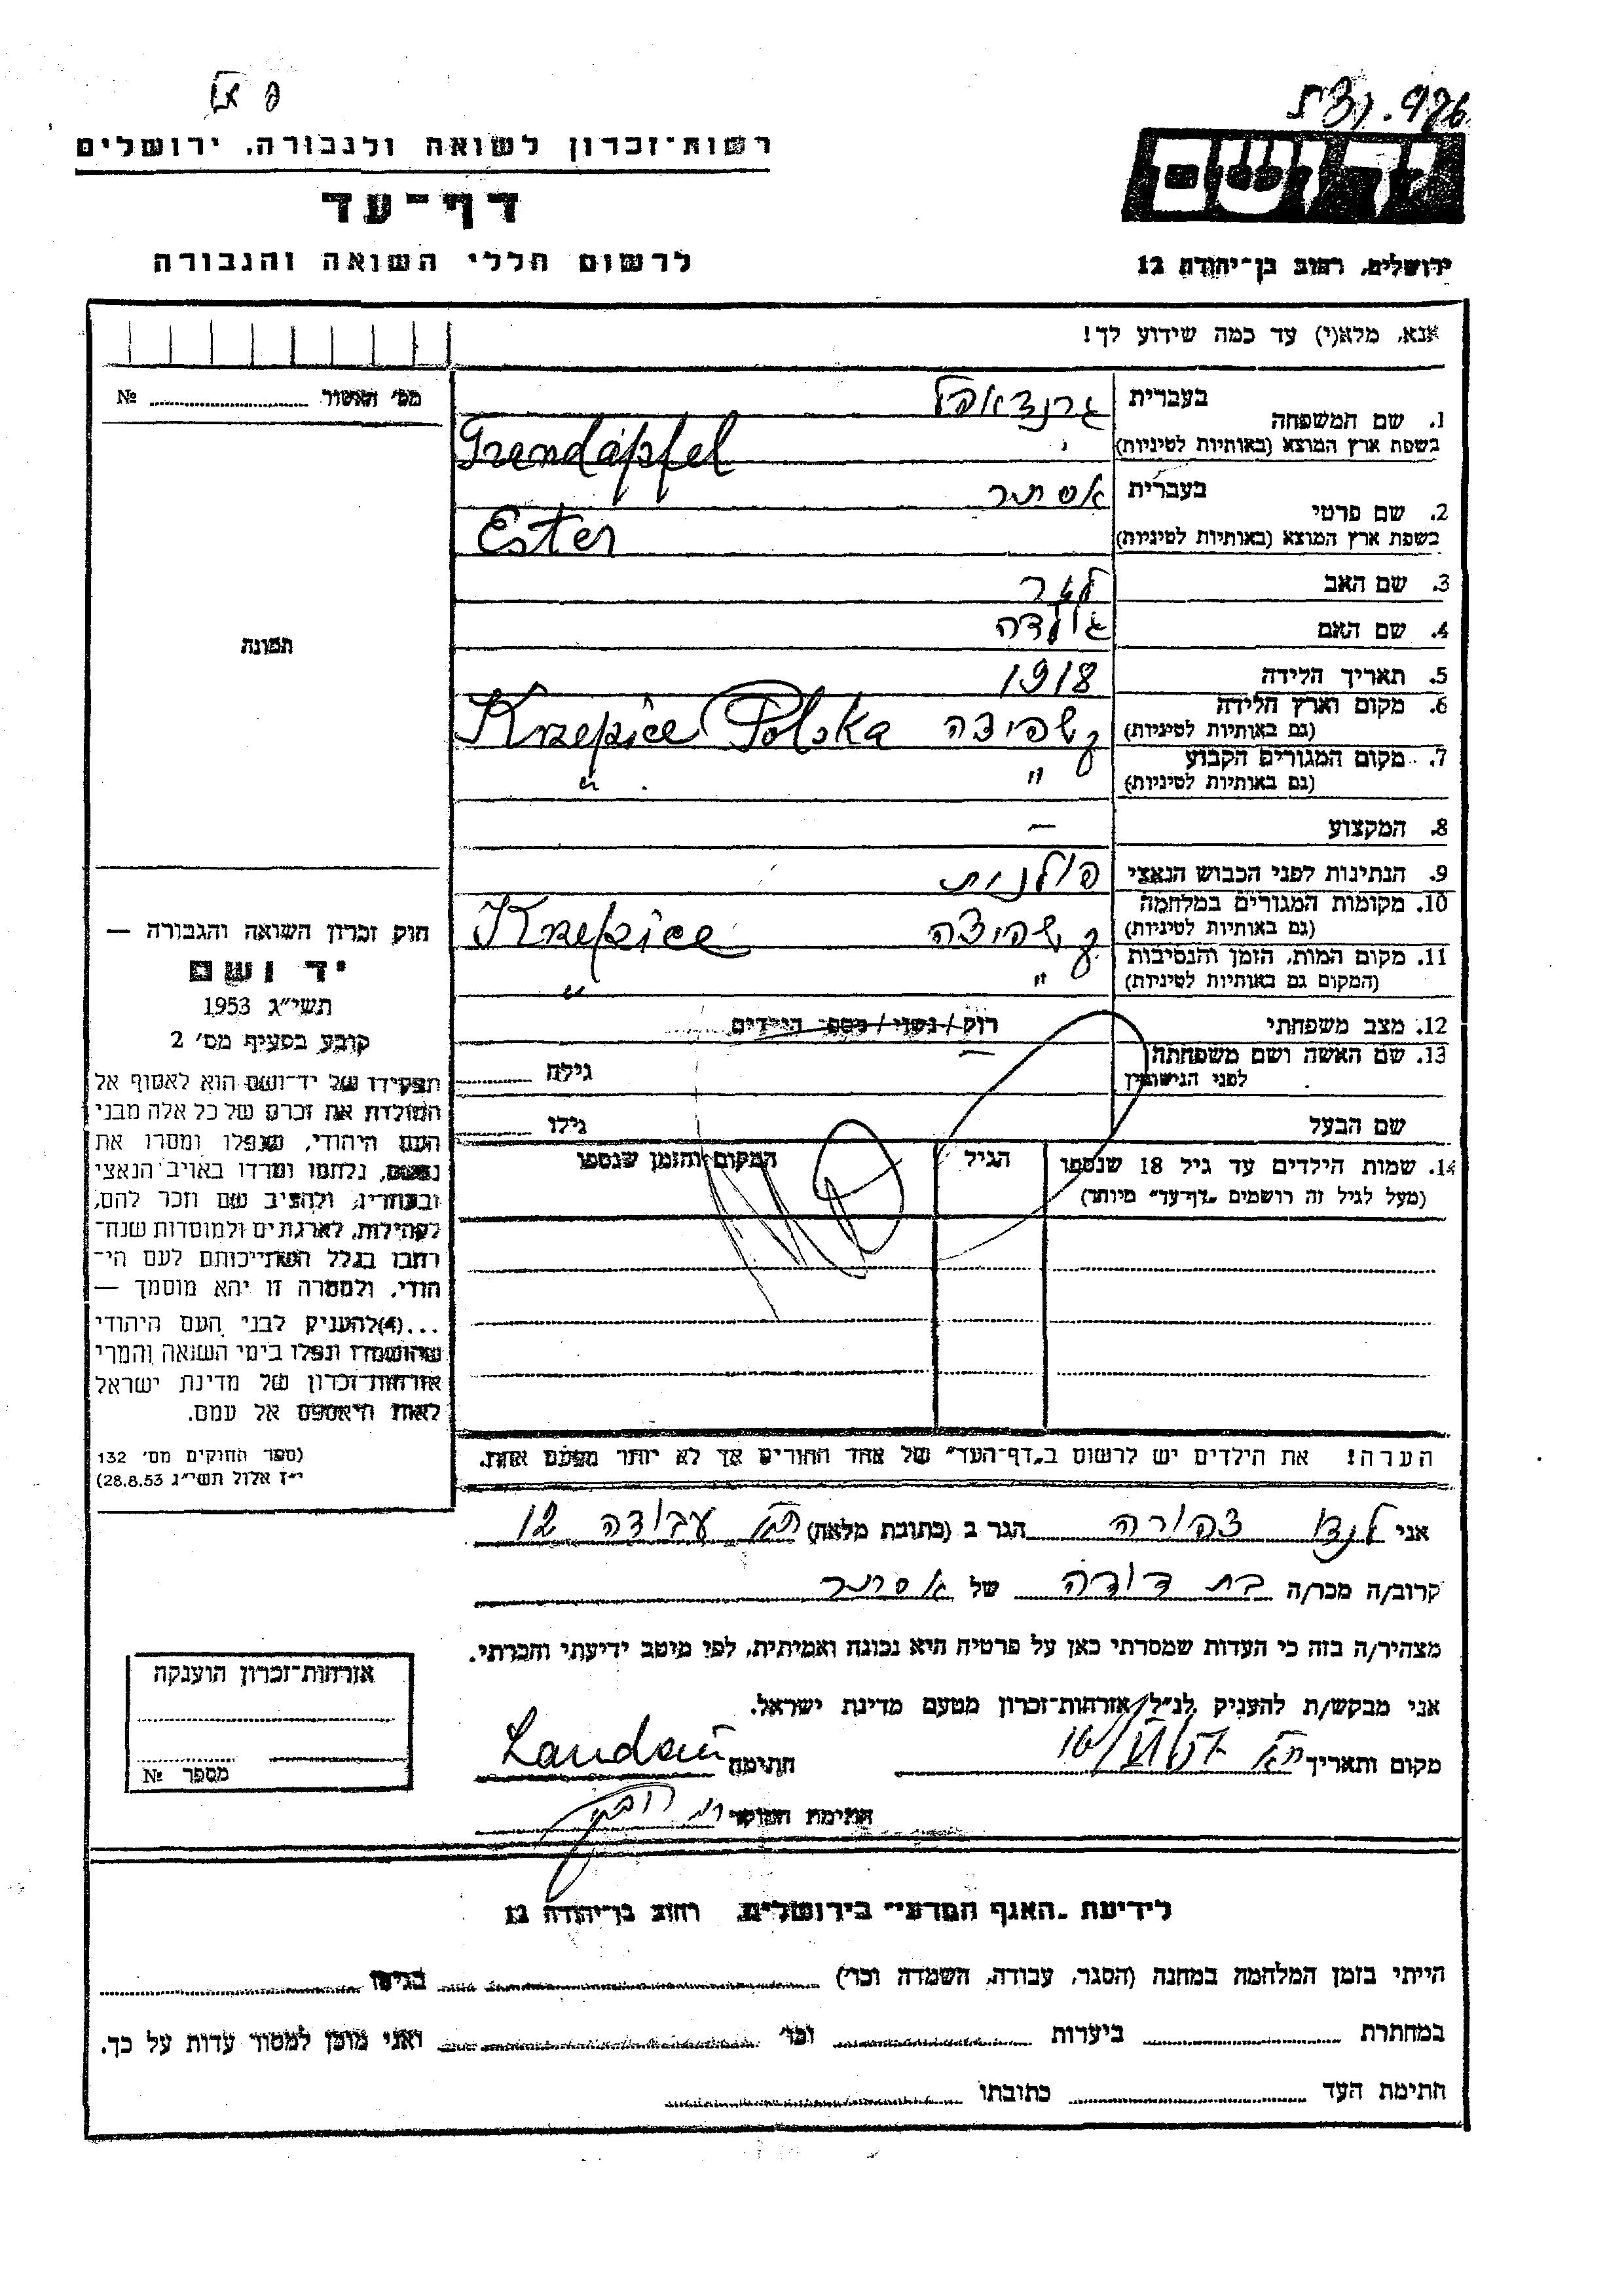 רשות־זכרון לשואה ולגבורה, ירושלים
דף־עד
לרשום חללי השואה והגבורה
יד ושם
ירושלים, רחוב בן־יהודה 12
אנא, מלא(י) עד כמה שידוע לך!
מס' האשור № 
1. שם המשפחה
בעברית
בשפת ארץ המוצא (באותיות לטיניות)
Grendapfel
2. שם פרטי
בעברית אסתר
בשפת ארץ המוצא (באותיות לטיניות)
Ester
3. שם האב
4. שם האם גולדה
5. תאריך הלידה 1918
6. מקום וארץ הלידה
(גם באותיות לטיניות)
קשפיצה Krzepice Polska
7. מקום המגורים הקבוע
(גם באותיות לטיניות)
" "
8. המקצוע —
9. הנתינות לפני הכבוש הנאצי פולנית
10. מקומות המגורים במלחמה
(גם באותיות לטיניות)
קשפיצה Krzepice
11. מקום המות, הזמן והנסיבות
(המקום גם באותיות לטיניות)
" "
12. מצב משפחתי
רוק / נשוי / מספר הילדים
13. שם האשה ושם משפחתה
לפני הנישואין
גילה
שם הבעל
גילו
14. שמות הילדים עד גיל 18 שנספו
(מעל לגיל זה רושמים „דף־עד" מיוחד)
הגיל
המקום והזמן שנספו
הערה! את הילדים יש לרשום ב„דף־העד" של אחד ההורים אך לא יותר מפעם אחת.
תמונה
חוק זכרון השואה והגבורה —
יד ושם
תשי"ג 1953
קובע בסעיף מס' 2
תפקידו של יד־ושם הוא לאסוף אל
המולדת את זכרם של כל אלה מבני
העם היהודי, שנפלו ומסרו את
נפשם, נלחמו ומרדו באויב הנאצי
ובעוזריו, ולהציב שם וזכר להם,
לקהילות, לארגונים ולמוסדות שנח־
רבו בגלל השתייכותם לעם הי־
הודי, ולמטרה זו יהא מוסמך —
...(4) להעניק לבני העם היהודי
שהושמדו ונפלו בימי השואה והמרי
אזרחות־זכרון של מדינת ישראל
לאות היאספם אל עמם.
(ספר החוקים מס' 132
י"ז אלול תשי"ג 28.8.53)
אני לנדו צפורה הגר ב (כתובת מלאה) ת"א עבודה 12
קרוב/ה מכר/ה בת דודה של אסתר
מצהיר/ה בזה כי העדות שמסרתי כאן על פרטיה היא נכונה ואמיתית, לפי מיטב ידיעתי והכרתי.
אני מבקש/ת להעניק לנ"ל אזרחות־זכרון מטעם מדינת ישראל.
מקום ותאריך ת"א חתימה Landau
חתימת הפוקד
אזרחות־זכרון הוענקה
מספר №
לידיעת „האגף המדעי" בירושלים, רחוב בן־יהודה 12
הייתי בזמן המלחמה במחנה (הסגר, עבודה, השמדה וכו') בגיטו
במחתרת ביערות וכו' ואני מוכן למסור עדות על כך.
חתימת העד כתובתו